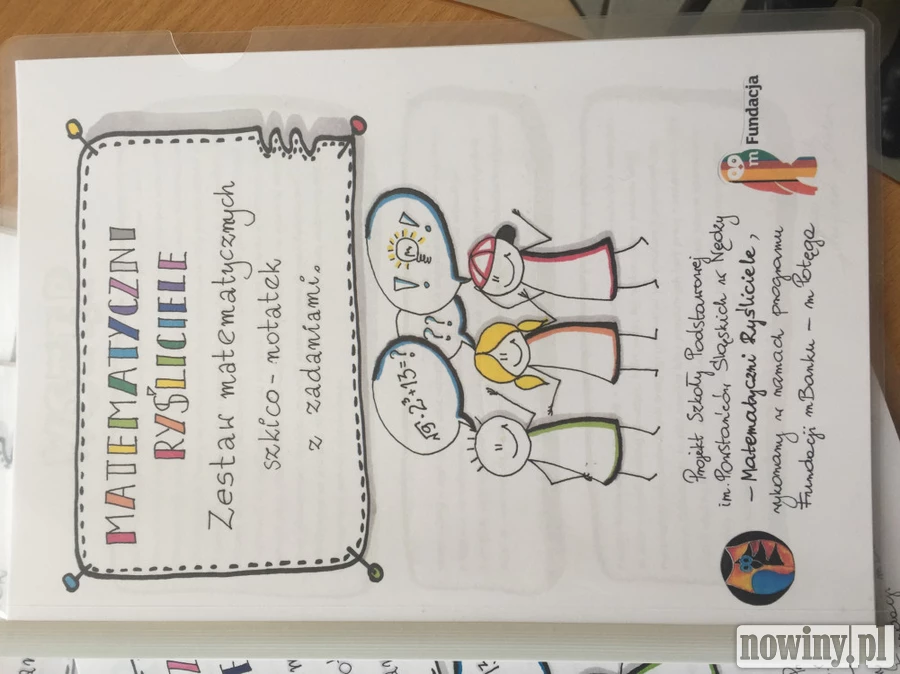 MATEMATYCZNI
RYŚLICIELE
Zestaw matematycznych
szkico-notatek
z zadaniami.
√9·2³+13=?
??
! !
Projekt Szkoły Podstawowej
im. Powstańców Śląskich w Nędzy
- Matematyczni Ryśliciele,
wykonany w ramach programu
Fundacji mBanku - m Potęga
m Fundacja
nowiny.pl